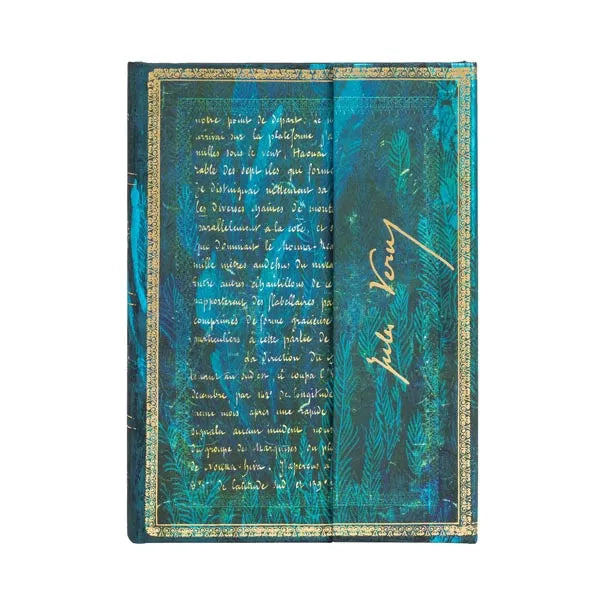 notre point de départ. Le m
arrivai sur la plateforme j'a
milles sous le vent, Haouai
rable des sept iles qui forme
je distinguai nettement sa
les diverses chaînes de mont
parallèlement à la côte, et s
que dominait le Mouna-Rea
mille mètres au-dessus du nivea
Entre autres échantillons de ce
rapportèrent des flabellaires, pa
comprimés de forme gracieuse
particuliers à cette partie de
La direction du
au sud-est il coupa l'
décembre, par 142° de longitude
même mois, après une rapide
signala aucun incident, nous
du groupe des Marquises. à
de Nouka-hiva. J'aperçus à
8° de latitude sud et 139°
Jules Verne